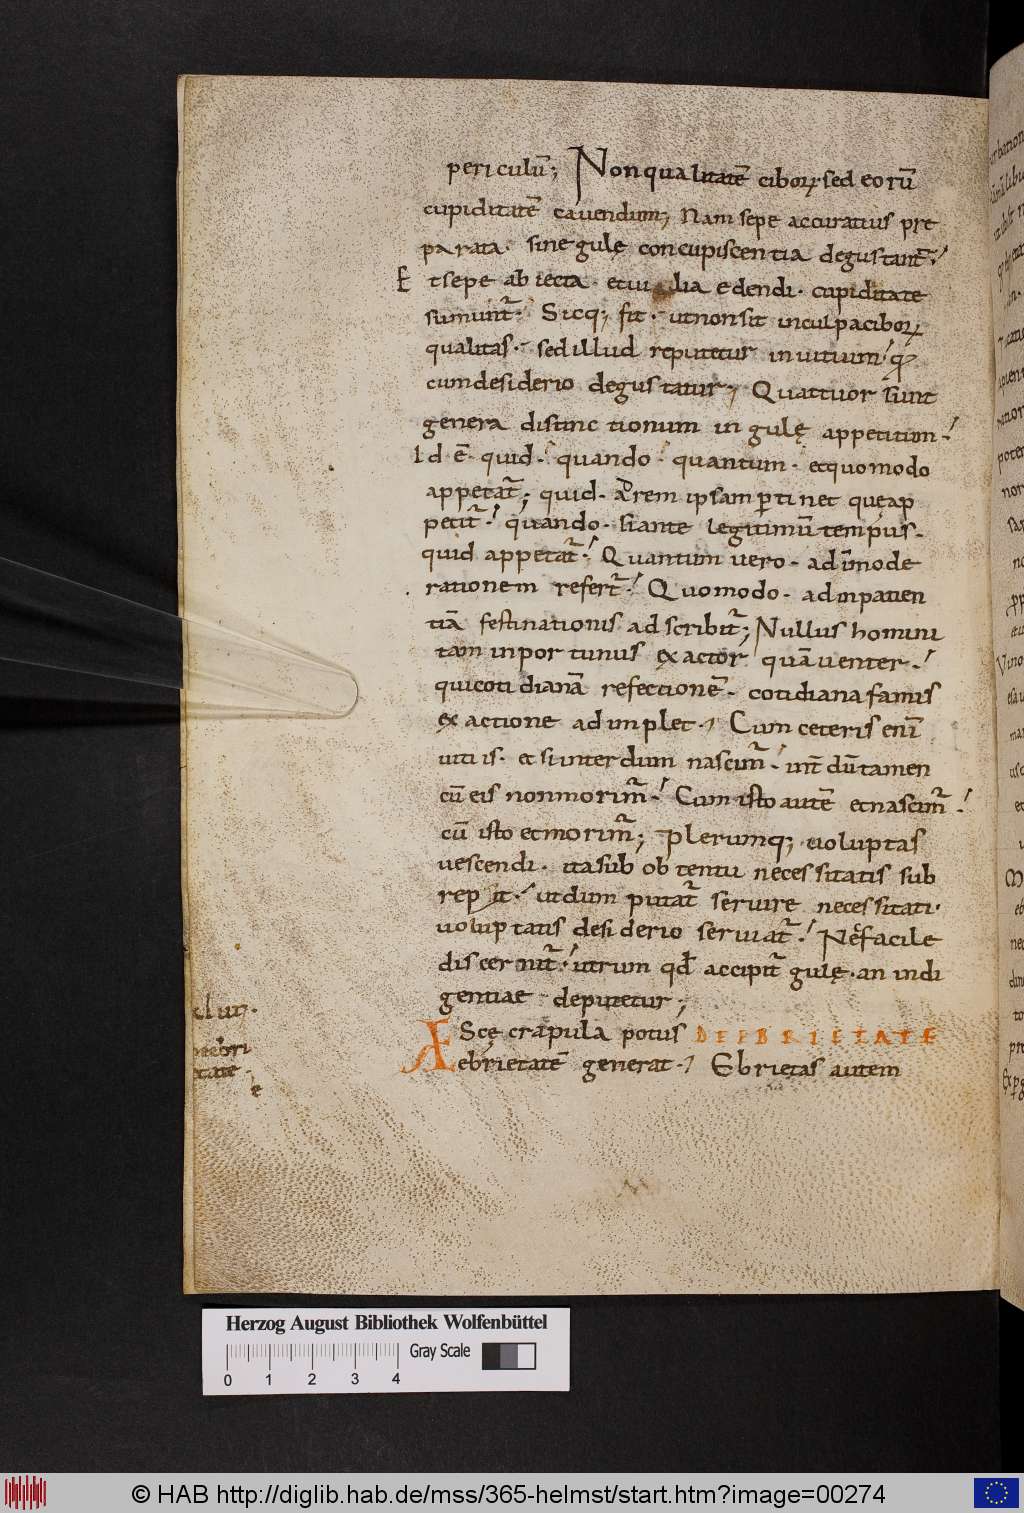 periculū; Non qualitatē ciboꝝ sed eorū
cupiditatē cavendum; Nam sepe accuratius pre
parata. sine gulę concupiscentia degustant̄.
Et sepe abiecta. et vilia edendi. cupiditate
sumunt̄. Sicq; fit. ut non sit in culpa ciboꝝ
qualitas. sed illud reputetur in uitium. qđ
cum desiderio degustatur; Quattuor sunt
genera distinctionum in gulę appetitum.
Id ē. quid. quando. quantum. et quomodo
appetat̄; quid. ad rem ipsam ꝑtinet quę ap
petit̄. quando. si ante legitimū tempus.
quid appetat̄. Quantum vero. ad īmode
rationem refert̄. Quomodo. ad inpatien
tiā festinationis adscribit̄; Nullus homini
tam inportunus exactor quā venter.
qui cotidianā refectionē. cotidiana famis
exactione adimplet. Cum ceteris enī
uitiis. et si interdum nascim̄. int̄dū tamen
cū eis non morim̄. Cum isto autē et nascim̄.
cū isto et morim̄; Plerumq; uoluptas
vescendi. ita sub obtentu necessitatis sub
repit. ut dum putat̄ servire necessitati.
uoluptatis desiderio serviat̄. Nec facile
discernit̄. utrum qđ accipit̄ gulę. an indi
gentiae deputetur;
Escę crapula potus DE EBRIETATE
Aebrietatē generat. Ebrietas autem
Herzog August Bibliothek Wolfenbüttel
Gray Scale
0 1 2 3 4
© HAB http://diglib.hab.de/mss/365-helmst/start.htm?image=00274